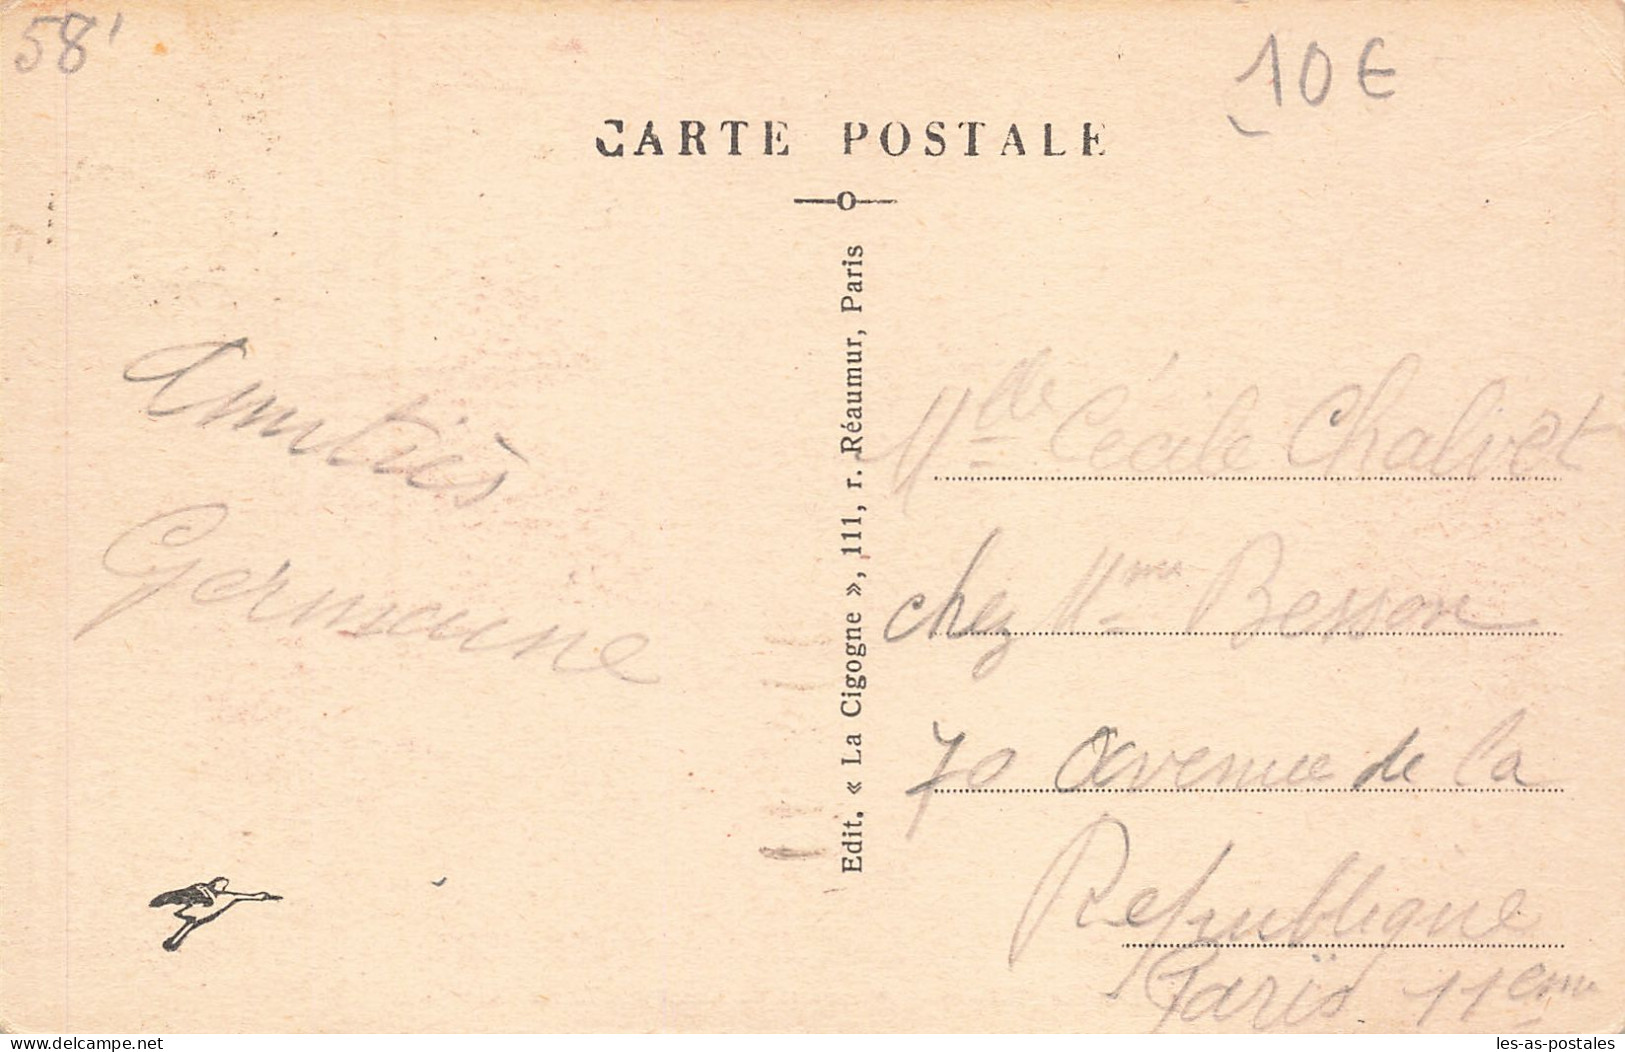 58'
10€
CARTE POSTALE
Amitiés
Germaine
Edit. « La Cigogne », 111, r. Réaumur, Paris
Mlle Cécile Chalvet
chez Mme Besson
70 avenue de la
République
Paris 11eme
www.delcampe.net
les-as-postales